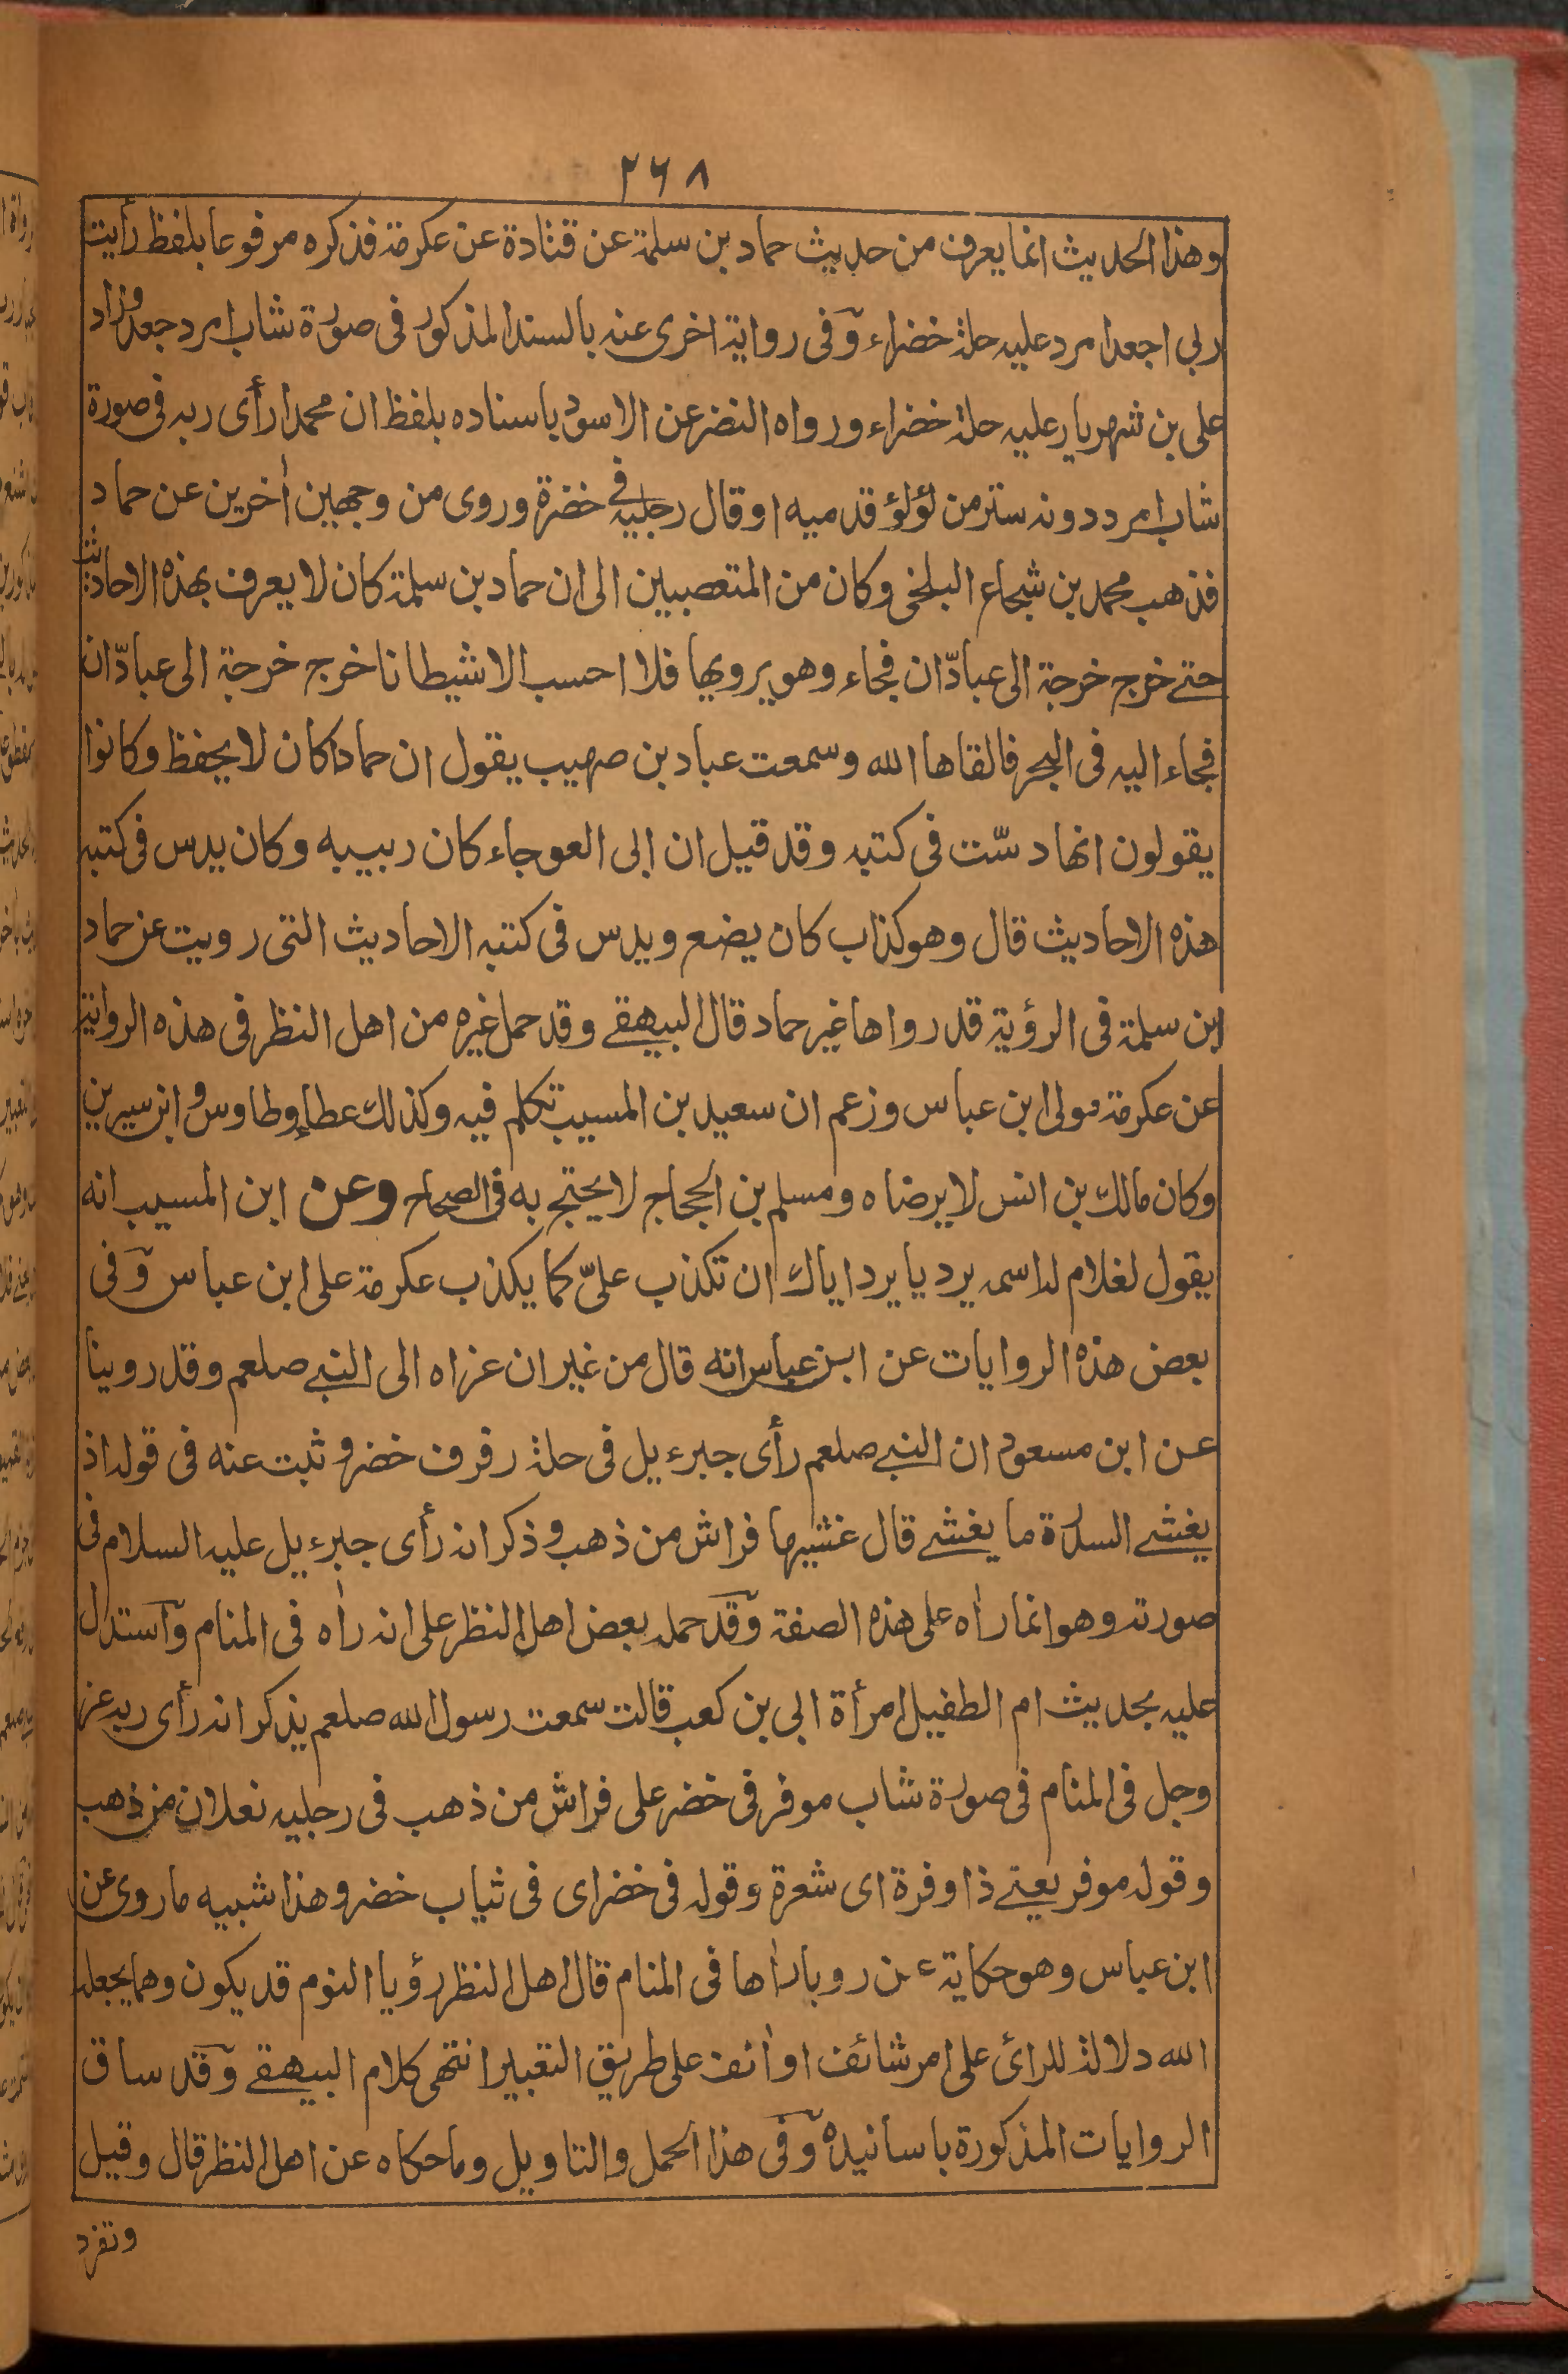 ٢٦٨
وهذا الحديث انما يعرف من حديث حماد بن سلمة عن قتادة عن عكرمة فذكره مرفوعا بلفظ رأيت
ربى اجعد امرد عليه حلة خضراء وفى رواية اخرى عنه بالسند المذكور فى صورة شاب امرد جعد وزاد
على بن شهريار عليه حلة خضراء ورواه النضر عن الاسود باسناده بلفظ ان محمدا رأى ربه فى صورة
شاب امرد دونه ستر من لؤلؤ قدميه او قال رجليه فى خضرة وروى من وجهين اٰخرين عن حماد
فذهب محمد بن شجاع البلخى وكان من المتعصبين الى ان حماد بن سلمة كان لا يعرف بهذه الاحاديث
حتى خرج خرجة الى عبادّان فجاء وهو يرويها فلا احسب الا شيطانا خرج خرجة الى عبادّان
فجاء اليه فى البحر فالقاها الله وسمعت عباد بن صهيب يقول ان حمادا كان لا يحفظ وكانوا
يقولون انها دسّت فى كتبه وقد قيل ان ابى العوجاء كان ربيبه وكان يدس فى كتبه
هذه الاحاديث قال وهو كذاب كان يضع ويدس فى كتبه الاحاديث التى رويت عن حماد
ابن سلمة فى الرؤية قد رواها غير حماد قال البيهقى وقد حمل غيره من اهل النظر فى هذه الرواية
عن عكرمة مولى ابن عباس وزعم ان سعيد بن المسيب تكلم فيه وكذلك عطاء وطاوس و ابن سيرين
وكان مالك بن انس لا يرضاه ومسلم بن الحجاج لا يحتج به فى الصحاح وعن ابن المسيب انه
يقول لغلام له اسمه برد يا برد اياك ان تكذب علىّ كما يكذب عكرمة على ابن عباس وفى
بعض هذه الروايات عن ابن عباس انه قال من غير ان عزاه الى النبى صلعم وقد روينا
عن ابن مسعود ان النبى صلعم رأى جبرءيل فى حلة رفرف خضر و ثبت عنه فى قوله اذ
يغشى السدرة ما يغشى قال غشيها فراش من ذهب وذكر انه رأى جبرءيل عليه السلام فى
صورته وهو انما راٰه على هذه الصفة وقد حمله بعض اهل النظر على انه راٰه فى المنام واستدل
عليه بحديث ام الطفيل امرأة ابى بن كعب قالت سمعت رسول الله صلعم يذكر انه رأى ربه عز
وجل فى المنام فى صورة شاب موفر فى خضر على فراش من ذهب فى رجليه نعلان من ذهب
وقوله موفر يعنى ذا وفرة اى شعرة وقوله فى خضر اى فى ثياب خضر وهذا شبيه ما روى عن
ابن عباس وهو حكاية عن رويا راٰها فى المنام قال اهل النظر رؤيا النوم قد يكون وهما يجعله
الله دلالة للرائ على امر شائف او اٰنف على طريق التعبير انتهى كلام البيهقى وقد ساق
الروايات المذكورة باسانيده وفى هذا الحمل والتاويل وما حكاه عن اهل النظر قال وقيل
وتفرد